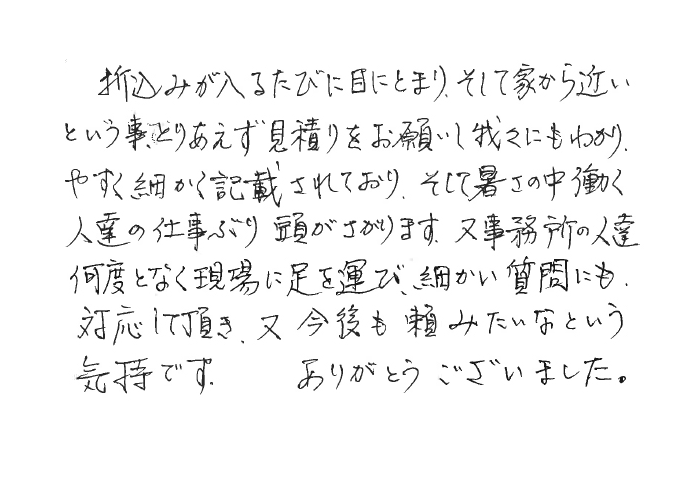 折込みが入るたびに目にとまり、そして家から近い
という事、とりあえず見積りをお願いし我々にもわかり、
やすく細かく記載されており、そして暑さの中働く
人達の仕事ぶり頭がさがります、又事務所の人達
何度となく現場に足を運び、細かい質問にも、
対応して頂き、又今後も頼みたいなという
気持です、　　ありがとうございました。